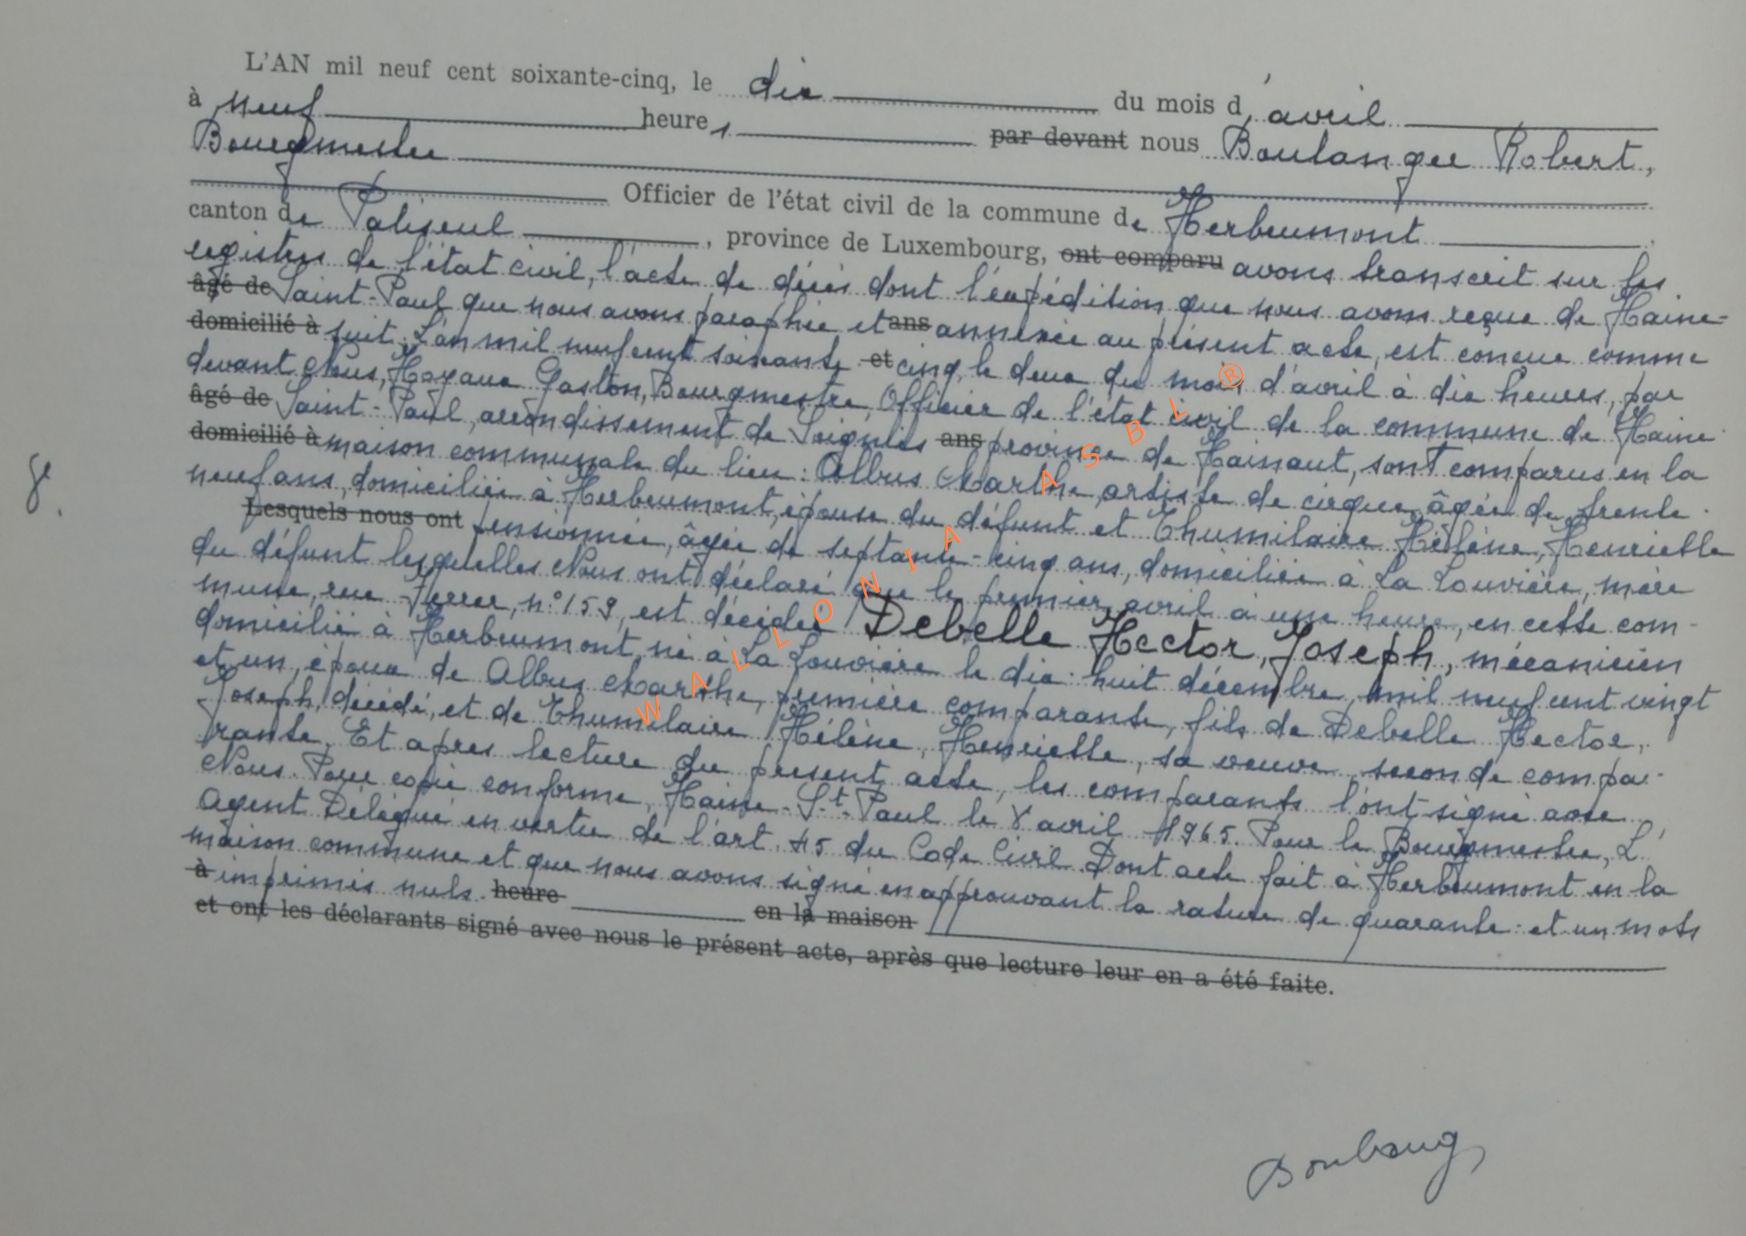 L'AN mil neuf cent soixante-cinq, le dix du mois d'avril
à neuf heures par devant nous Boulanger Robert,
Bourgmestre
Officier de l'état civil de la commune de Herbeumont
canton de Paliseul, province de Luxembourg, ont comparu avons transcrit sur les
registres de l'état civil, l'acte de décès dont l'expédition que nous avons reçue de Haine-
âgé de Saint-Paul que nous avons paraphée et ans annexée au présent acte, est conçue comme
domicilié à suit. L'an mil neuf cent soixante et cinq, le deux du mois d'avril à dix heures, par
devant Nous, Hoyaux Gaston, Bourgmestre, Officier de l'état civil de la commune de Haine-
âgé de Saint-Paul, arrondissement de Soignies ans province de Hainaut, sont comparus en la
domicilié à maison communale du lieu: Albus Marthe, artiste de cirque, âgée de trente-
neuf ans, domiciliée à Herbeumont, épouse du défunt et Thumilaire Hélène, Henriette
Lesquels nous ont pensionnée, âgée de septante-cinq ans, domiciliée à La Louvière, mère
du défunt lesquelles Nous ont déclaré que le premier avril à une heure, en cette com-
mune, rue Ferrer, n° 159, est décédé Debelle Hector, Joseph, mécanicien
domicilié à Herbeumont, né à La Louvière le dix-huit décembre, mil neuf cent vingt
et un, époux de Albus Marthe, première comparante, fils de Debelle Hector,
Joseph, décédé, et de Thumilaire Hélène, Henriette, sa veuve, seconde compa-
rante. Et après lecture du présent acte, les comparants l'ont signé avec
Nous. Pour copie conforme, Haine-St-Paul le 8 avril 1965. Pour le Bourgmestre, L'
Agent Délégué en vertu de l'art. 45 du Code Civil. Dont acte fait à Herbeumont en la
maison commune et que nous avons signé en approuvant la rature de quarante-et un mots
à imprimés nuls. heure en la maison
et ont les déclarants signé avec nous le présent acte, après que lecture leur en a été faite.
8.
WALLONIA ASBL ®